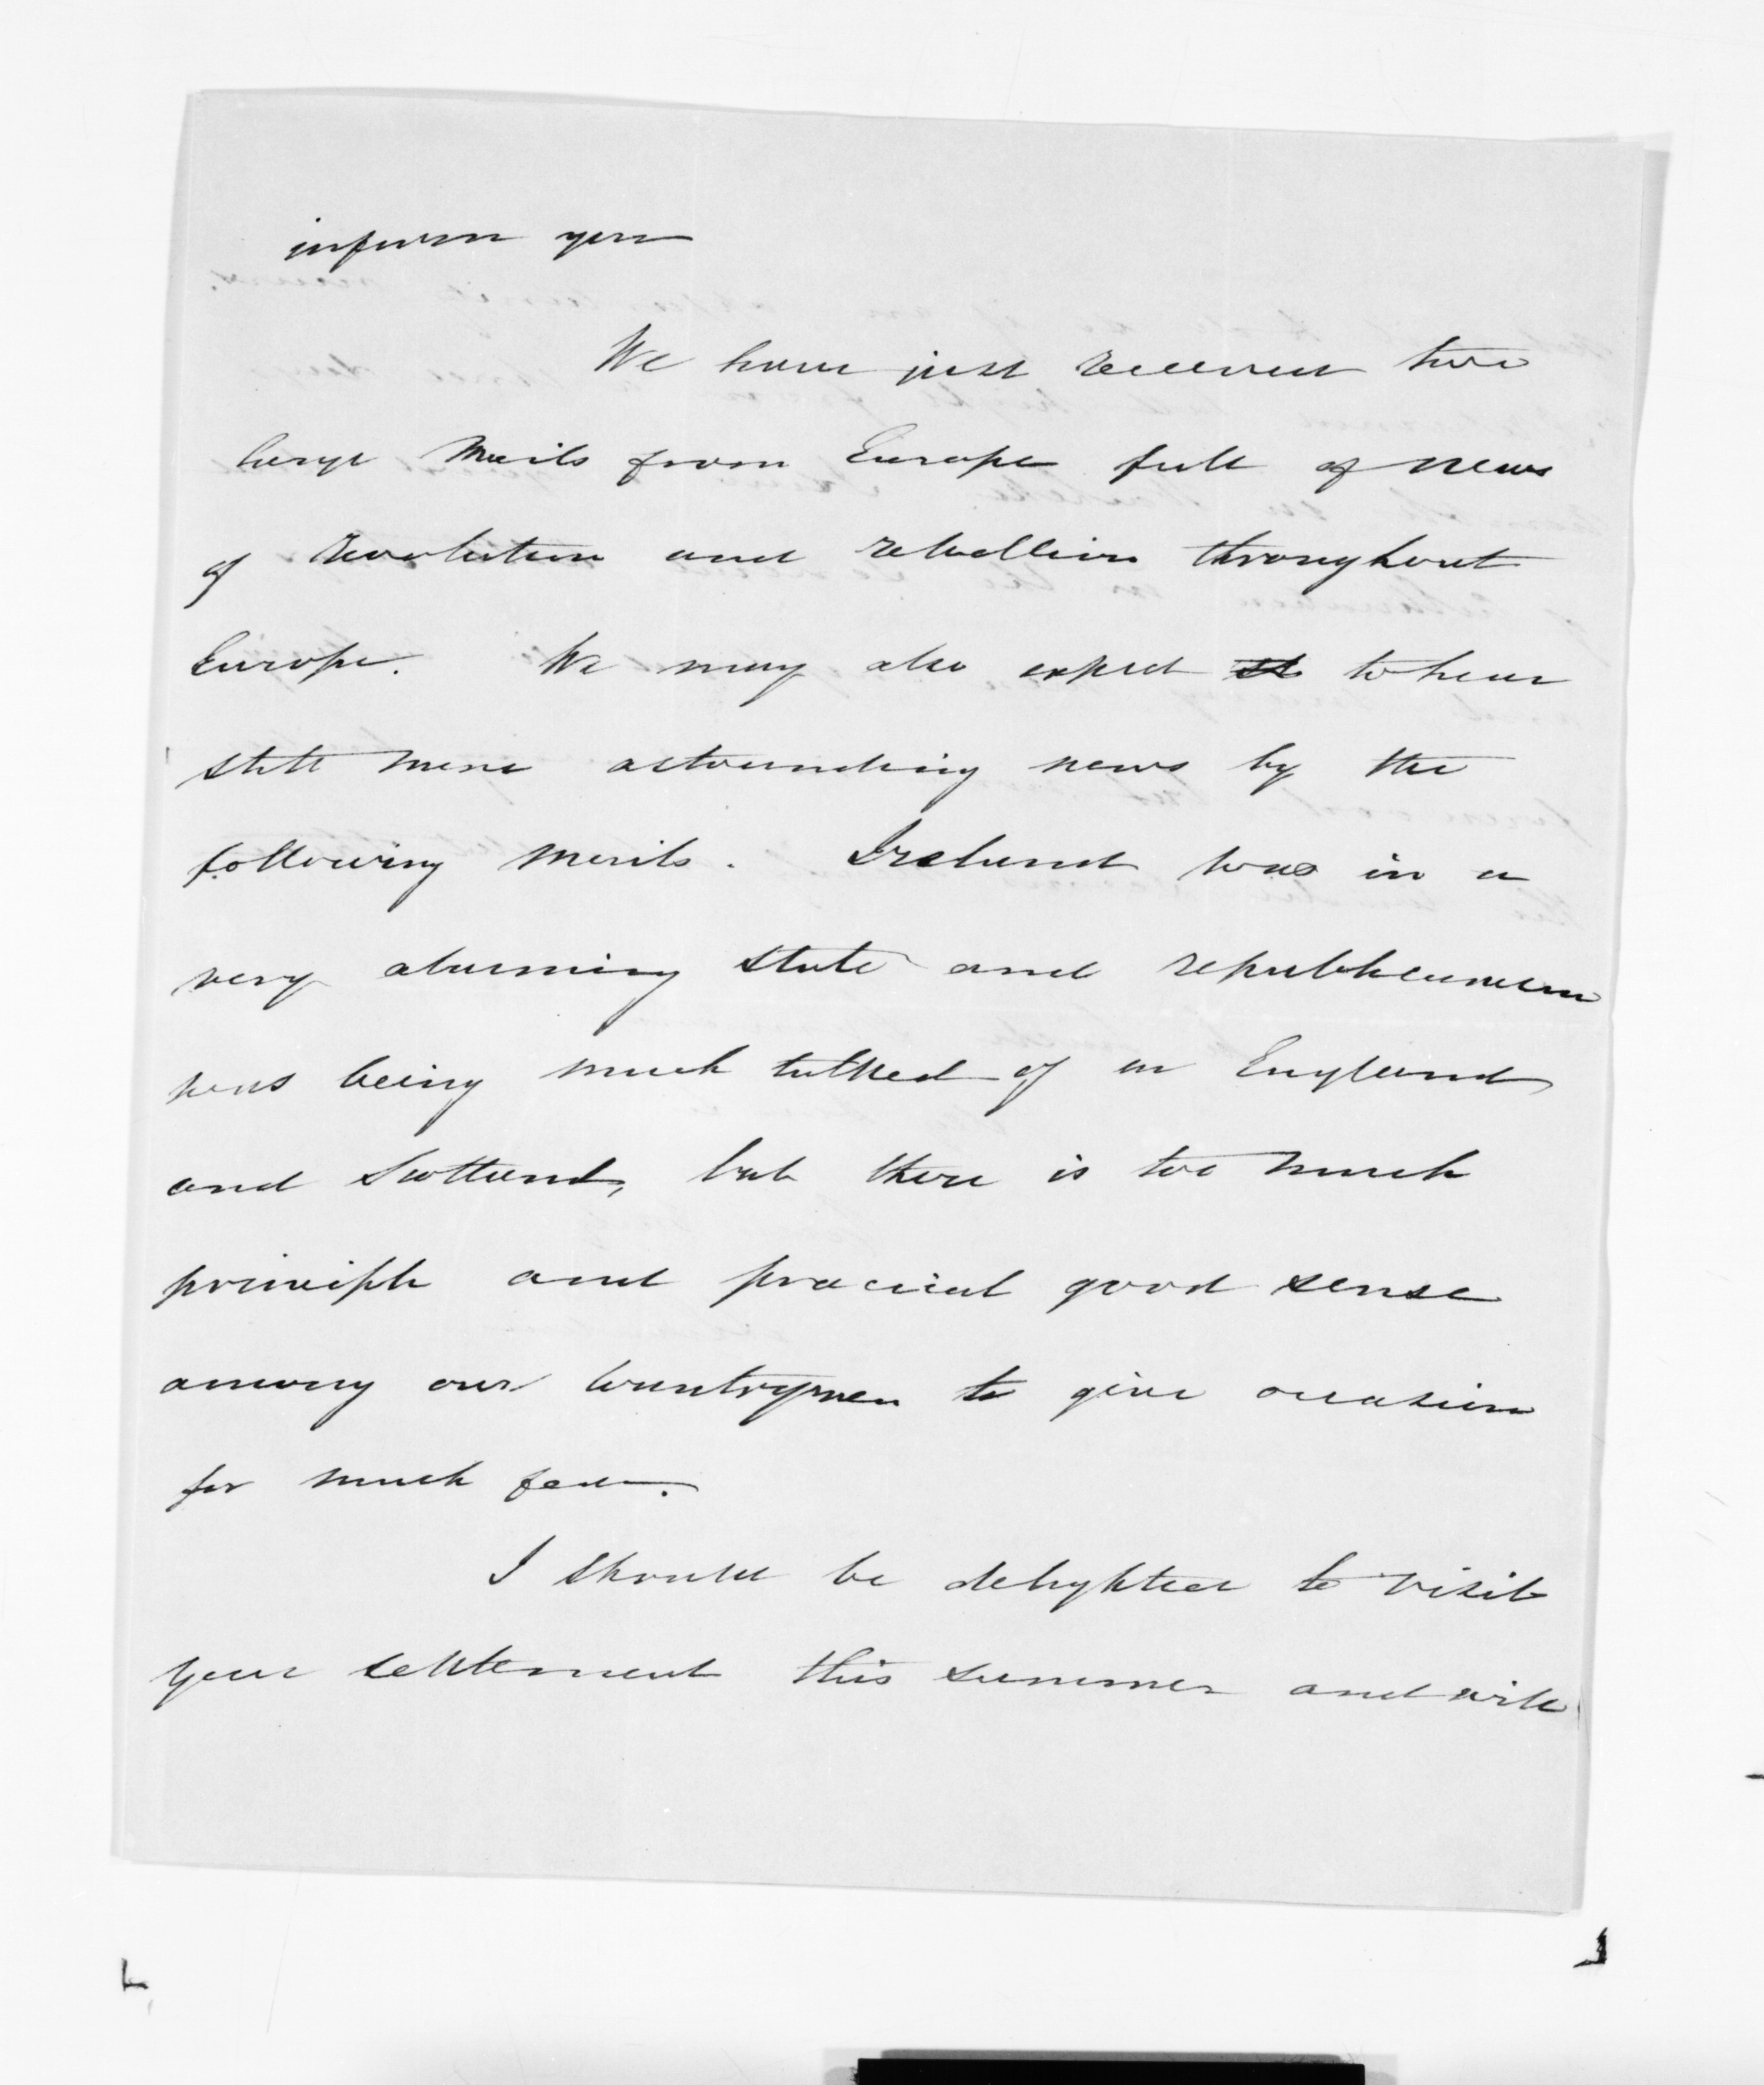 inform you
We have just received two
large Mails from Europe full of news
of revolution and rebellion throughout
Europe. We may also expect to hear
still more astounding news by the
following Mails. Ireland was in a
very alarming state and republicanism
was being much talked of in England
and Scotland, but there is too much
principle and pracical good sense
among our Countrymen to give occasion
for much fear.
I should be delighted to visit
your settlement this summer and will